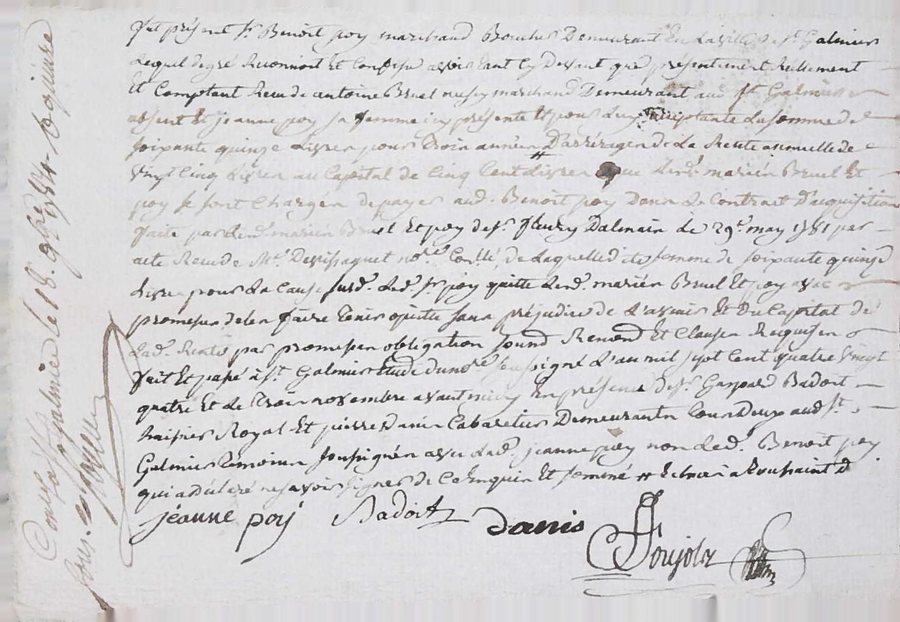 fut présent sr Benoit poy marchand Boucher Demeurant En La ville de st Galmier
Lequel de gré Reconnoit Et Confesse avoir tant Cy Devant que présentement Réellement
Et Comptant Reçu de antoine Bruel aussy marchand Demeurant aud. st Galmier
absent Et jeanne poy sa femme icy présente Et pour Luy acceptante La somme de
soixante quinze Livres pour Trois années D'arrérages de La Rente annuelle de
vingt Cinq Livres au Capital de Cinq Cent Livres que Lesd. mariés Bruel Et
poy se sont Chargés de payer aud. Benoit poy Dans Le Contract D'acquisition
faite par Lesd. mariés Bruel Et poy de sr fleury Dalmain Le 29e may 1781 par
acte Recu de Me Devissaguet nore de Laquelle dite somme de soixante quinze
Livres pour La Cause susd. Led. sr poy quitte Lesd. mariés Bruel Et poy avec
promesse de Les faire tenir quitte sans préjudice de L'avenir Et Du Capital de
Lad. Rente par promesses obligation Renond Et Clauses Requises
fait Et passé à st Galmier Etude du nore soussigné L'an mil sept cent quatre vingt
quatre Et Le Trois novembre avant midy En présence de sr Gaspard Badoit
huissier Royal Et pierre Danis Cabaretier Demeurants Tous Deux aud. st
Galmier Témoins soussignés avec Lad. jeanne poy non Led. Benoit poy
qui a Déclaré ne savoir signer de Ce Enquis Et sommé
jeanne poy Badoit danis
Poujolz
Controllé à st Galmier le 18. 9bre 1784. Reçu quinze
sous.